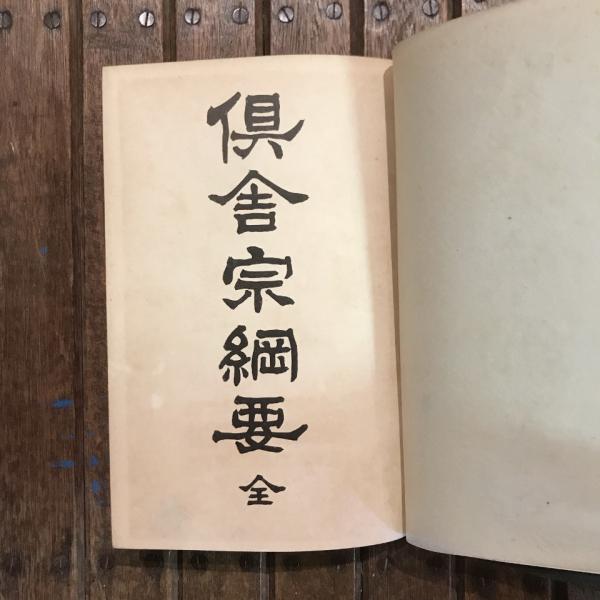 倶舎宗綱要
全